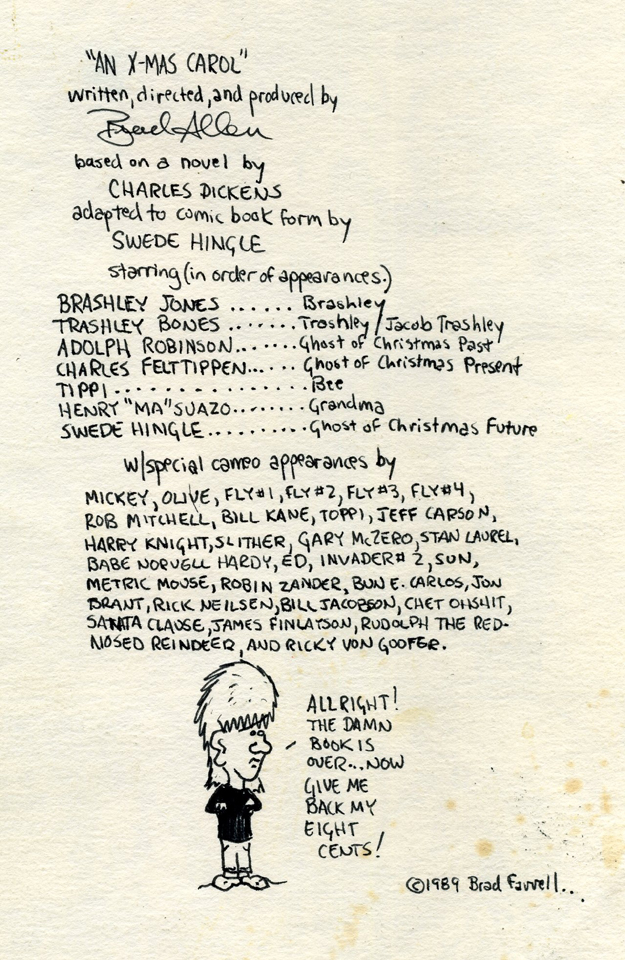 "AN X-MAS CAROL"
written, directed, and produced by
Brad Allen
based on a novel by
CHARLES DICKENS
adapted to comic book form by
SWEDE HINGLE
starring (in order of appearances.)
BRASHLEY JONES ...... Brashley
TRASHLEY BONES ....... Trashley / Jacob Trashley
ADOLPH ROBINSON....... Ghost of Christmas Past
CHARLES FELTTIPPEN...... Ghost of Christmas Present
TIPPI................ Bee
HENRY "MA" SUAZO........ Grandma
SWEDE HINGLE.......... Ghost of Christmas Future
w/special cameo appearances by
MICKEY, OLIVE, FLY#1, FLY#2, FLY#3, FLY#4,
ROB MITCHELL, BILL KANE, TOPPI, JEFF CARSON,
HARRY KNIGHT, SLITHER, GARY McZERO, STAN LAUREL,
BABE NORVELL HARDY, ED, INVADER# 2, SUN,
METRIC MOUSE, ROBIN ZANDER, BUN E. CARLOS, JON
BRANT, RICK NEILSEN, BILL JACOBSON, CHET OHSHIT,
SANTA CLAUSE, JAMES FINLAYSON, RUDOLPH THE RED-
NOSED REINDEER, AND RICKY VON GOOFER.
ALLRIGHT!
THE DAMN
BOOK IS
OVER...NOW
GIVE ME
BACK MY
EIGHT
CENTS!
©1989 Brad Farrell...